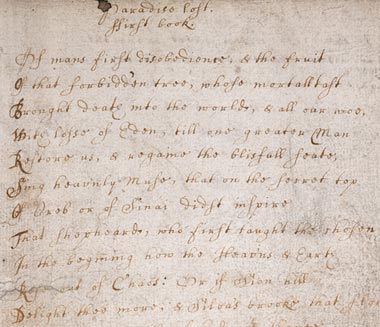 Paradise lost.
ffirst book
Of mans first disobedience, & the fruit
Of that forbidden tree, whose mortall tast
Brought death into the world, & all our woe,
With losse of Eden, till one greater Man
Restore us, & regaine the blisfull seate,
Sing heavnly Muse, that on the secret top
Of Oreb or of Sinai didst inspire
That shepheard, who first taught the chosen
In the begining how the Heavns & Earth
out of Chaos: Or if Sion hill
Delight thee more, & Siloas brooke that